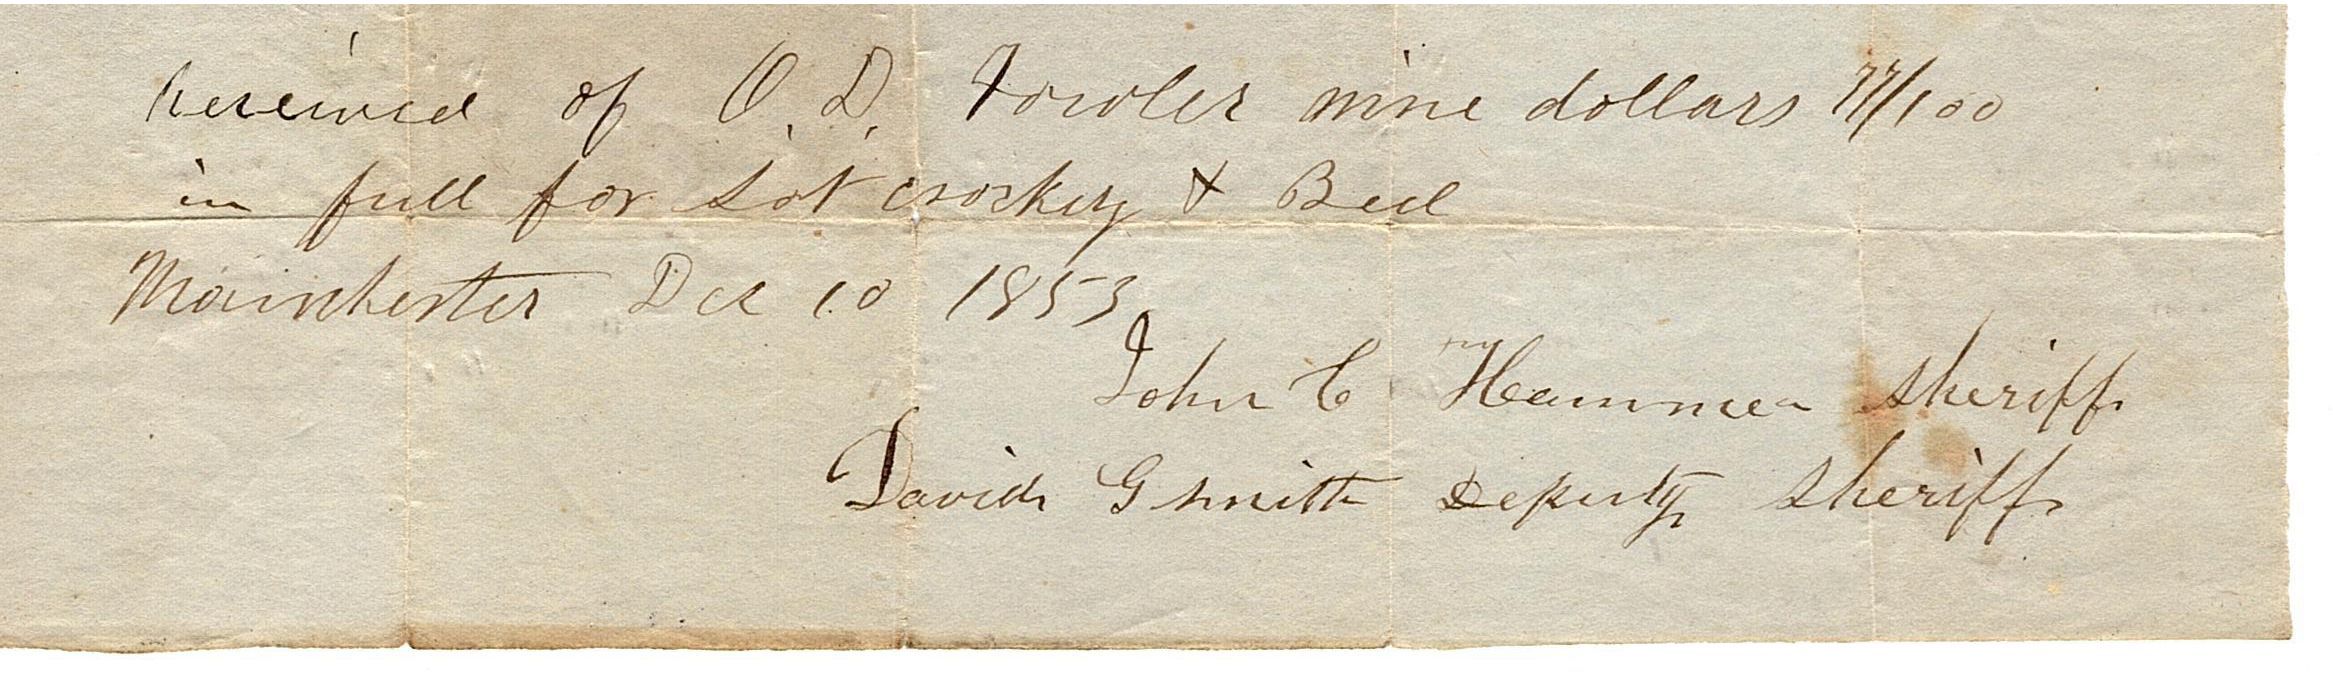 Received of O. D. Fowler nine dollars 77/100
in full for Lot crockery & Bed
Mainchester Dec 10 1853
John C Hammer sheriff
David G Smith Deputy sheriff